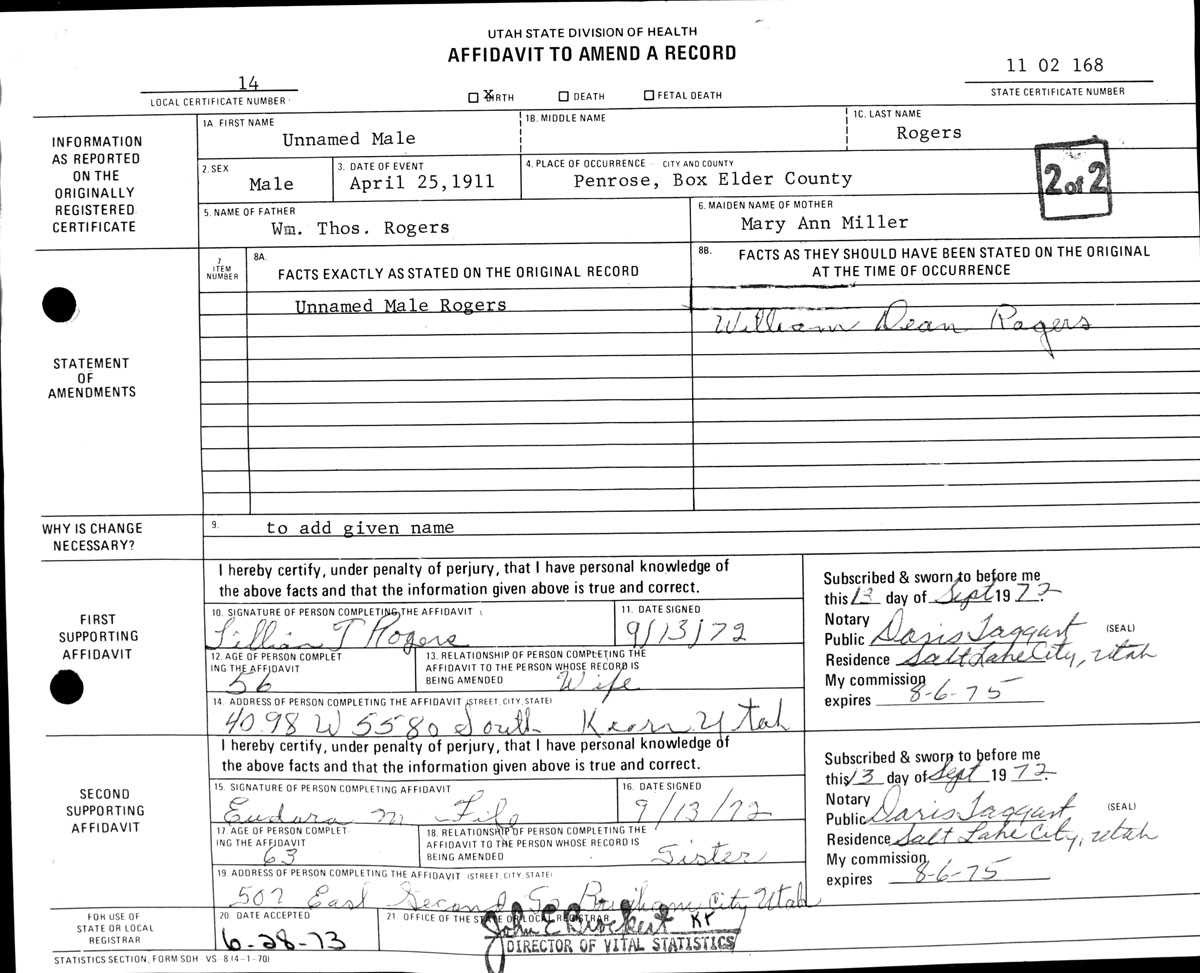 UTAH STATE DIVISION OF HEALTH
AFFIDAVIT TO AMEND A RECORD
14
LOCAL CERTIFICATE NUMBER
☐ BIRTH ☐ DEATH ☐ FETAL DEATH
X
11 02 168
STATE CERTIFICATE NUMBER
INFORMATION
AS REPORTED
ON THE
ORIGINALLY
REGISTERED
CERTIFICATE
1A. FIRST NAME
Unnamed Male
1B. MIDDLE NAME
1C. LAST NAME
Rogers
2. SEX
Male
3. DATE OF EVENT
April 25,1911
4. PLACE OF OCCURRENCE - CITY AND COUNTY
Penrose, Box Elder County
2 of 2
5. NAME OF FATHER
Wm. Thos. Rogers
6. MAIDEN NAME OF MOTHER
Mary Ann Miller
STATEMENT
OF
AMENDMENTS
7
ITEM
NUMBER
8A.
FACTS EXACTLY AS STATED ON THE ORIGINAL RECORD
8B. FACTS AS THEY SHOULD HAVE BEEN STATED ON THE ORIGINAL
AT THE TIME OF OCCURRENCE
Unnamed Male Rogers
William Dean Rogers
WHY IS CHANGE
NECESSARY?
9. to add given name
FIRST
SUPPORTING
AFFIDAVIT
I hereby certify, under penalty of perjury, that I have personal knowledge of
the above facts and that the information given above is true and correct.
10. SIGNATURE OF PERSON COMPLETING THE AFFIDAVIT
Lillian T Rogers
11. DATE SIGNED
9/13/72
12. AGE OF PERSON COMPLET
ING THE AFFIDAVIT
56
13. RELATIONSHIP OF PERSON COMPLETING THE
AFFIDAVIT TO THE PERSON WHOSE RECORD IS
BEING AMENDED
Wife
14. ADDRESS OF PERSON COMPLETING THE AFFIDAVIT (STREET, CITY, STATE)
4098 W 5580 South Kearn Utah
Subscribed & sworn to before me
this 13 day of Sept 1972.
Notary
Public Doris Taggart (SEAL)
Residence Salt Lake City, Utah
My commission
expires 8-6-75
SECOND
SUPPORTING
AFFIDAVIT
I hereby certify, under penalty of perjury, that I have personal knowledge of
the above facts and that the information given above is true and correct.
15. SIGNATURE OF PERSON COMPLETING AFFIDAVIT
Eudora M
16. DATE SIGNED
9/13/72
17. AGE OF PERSON COMPLET
ING THE AFFIDAVIT
63
18. RELATIONSHIP OF PERSON COMPLETING THE
AFFIDAVIT TO THE PERSON WHOSE RECORD IS
BEING AMENDED
Sister
19. ADDRESS OF PERSON COMPLETING THE AFFIDAVIT (STREET, CITY, STATE)
502 East Second So Brigham City Utah
Subscribed & sworn to before me
this 13 day of Sept 1972
Notary
Public Doris Taggart (SEAL)
Residence Salt Lake City, Utah
My commission
expires 8-6-75
FOR USE OF
STATE OR LOCAL
REGISTRAR
20. DATE ACCEPTED
6-28-73
21. OFFICE OF THE STATE OR LOCAL REGISTRAR
John E Brockert
DIRECTOR OF VITAL STATISTICS
STATISTICS SECTION, FORM SDH - VS - 8 (4-1-70)